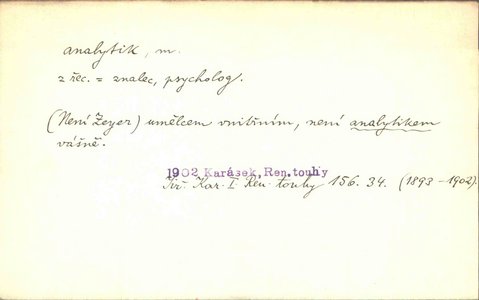 analytik, m.
z řec. = znalec, psycholog.
(Není Zeyer) umělcem vnitřním, není analytikem
vášně.
1902 Karásek, Ren.touhy
Jiř. Kar. I Ren. touhy 156. 34. (1893-1902).